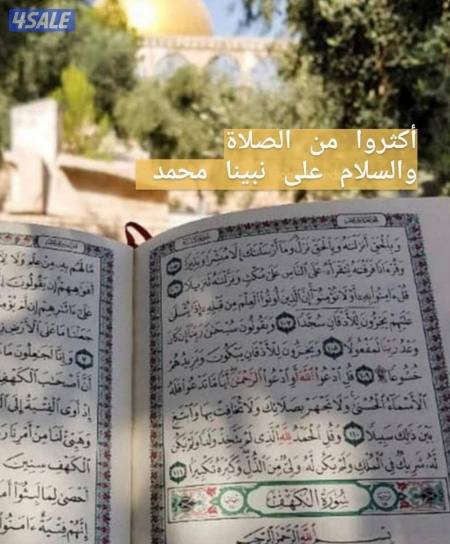 4SALE
أكثروا من الصلاة
والسلام على نبينا محمد
وبالحق أنزلناه وبالحق نزل وما أرسلناك إلا مبشرا ونذيرا ١٠٥
وقرءانا فرقناه لتقرأه على الناس على مكث ونزلناه تنزيلا ١٠٦
قل ءامنوا به أو لا تؤمنوا إن الذين أوتوا العلم من قبله إذا يتلى
عليهم يخرون للأذقان سجدا ١٠٧ ويقولون سبحن ربنا إن كان
وعد ربنا لمفعولا ١٠٨ ويخرون للأذقان يبكون ويزيدهم
خشوعا ١٠٩ قل ادعوا الله أو ادعوا الرحمن أيا ما تدعوا فله
الأسماء الحسنى ولا تجهر بصلاتك ولا تخافت بها وابتغ
بين ذلك سبيلا ١١٠ وقل الحمد لله الذى لم يتخذ ولدا ولم يكن
له شريك في الملك ولم يكن له ولي من الذل وكبره تكبيرا ١١١
سورة الكهف
بسم الله الرحمن الرحيم
ما لهم به من علم ولا لا
أفواههم إن يقولون
على ءاثرهم إن لم يؤ
جعلنا ما على الأرض
وإنا لجعلون ما
أن أصحب الكهف
إذ أوى الفتية إلى
وهيئ لنا من أمرنا ر
الكهف سنين
أحصى لما لبثوا أمد
إنهم فتية ءامنوا